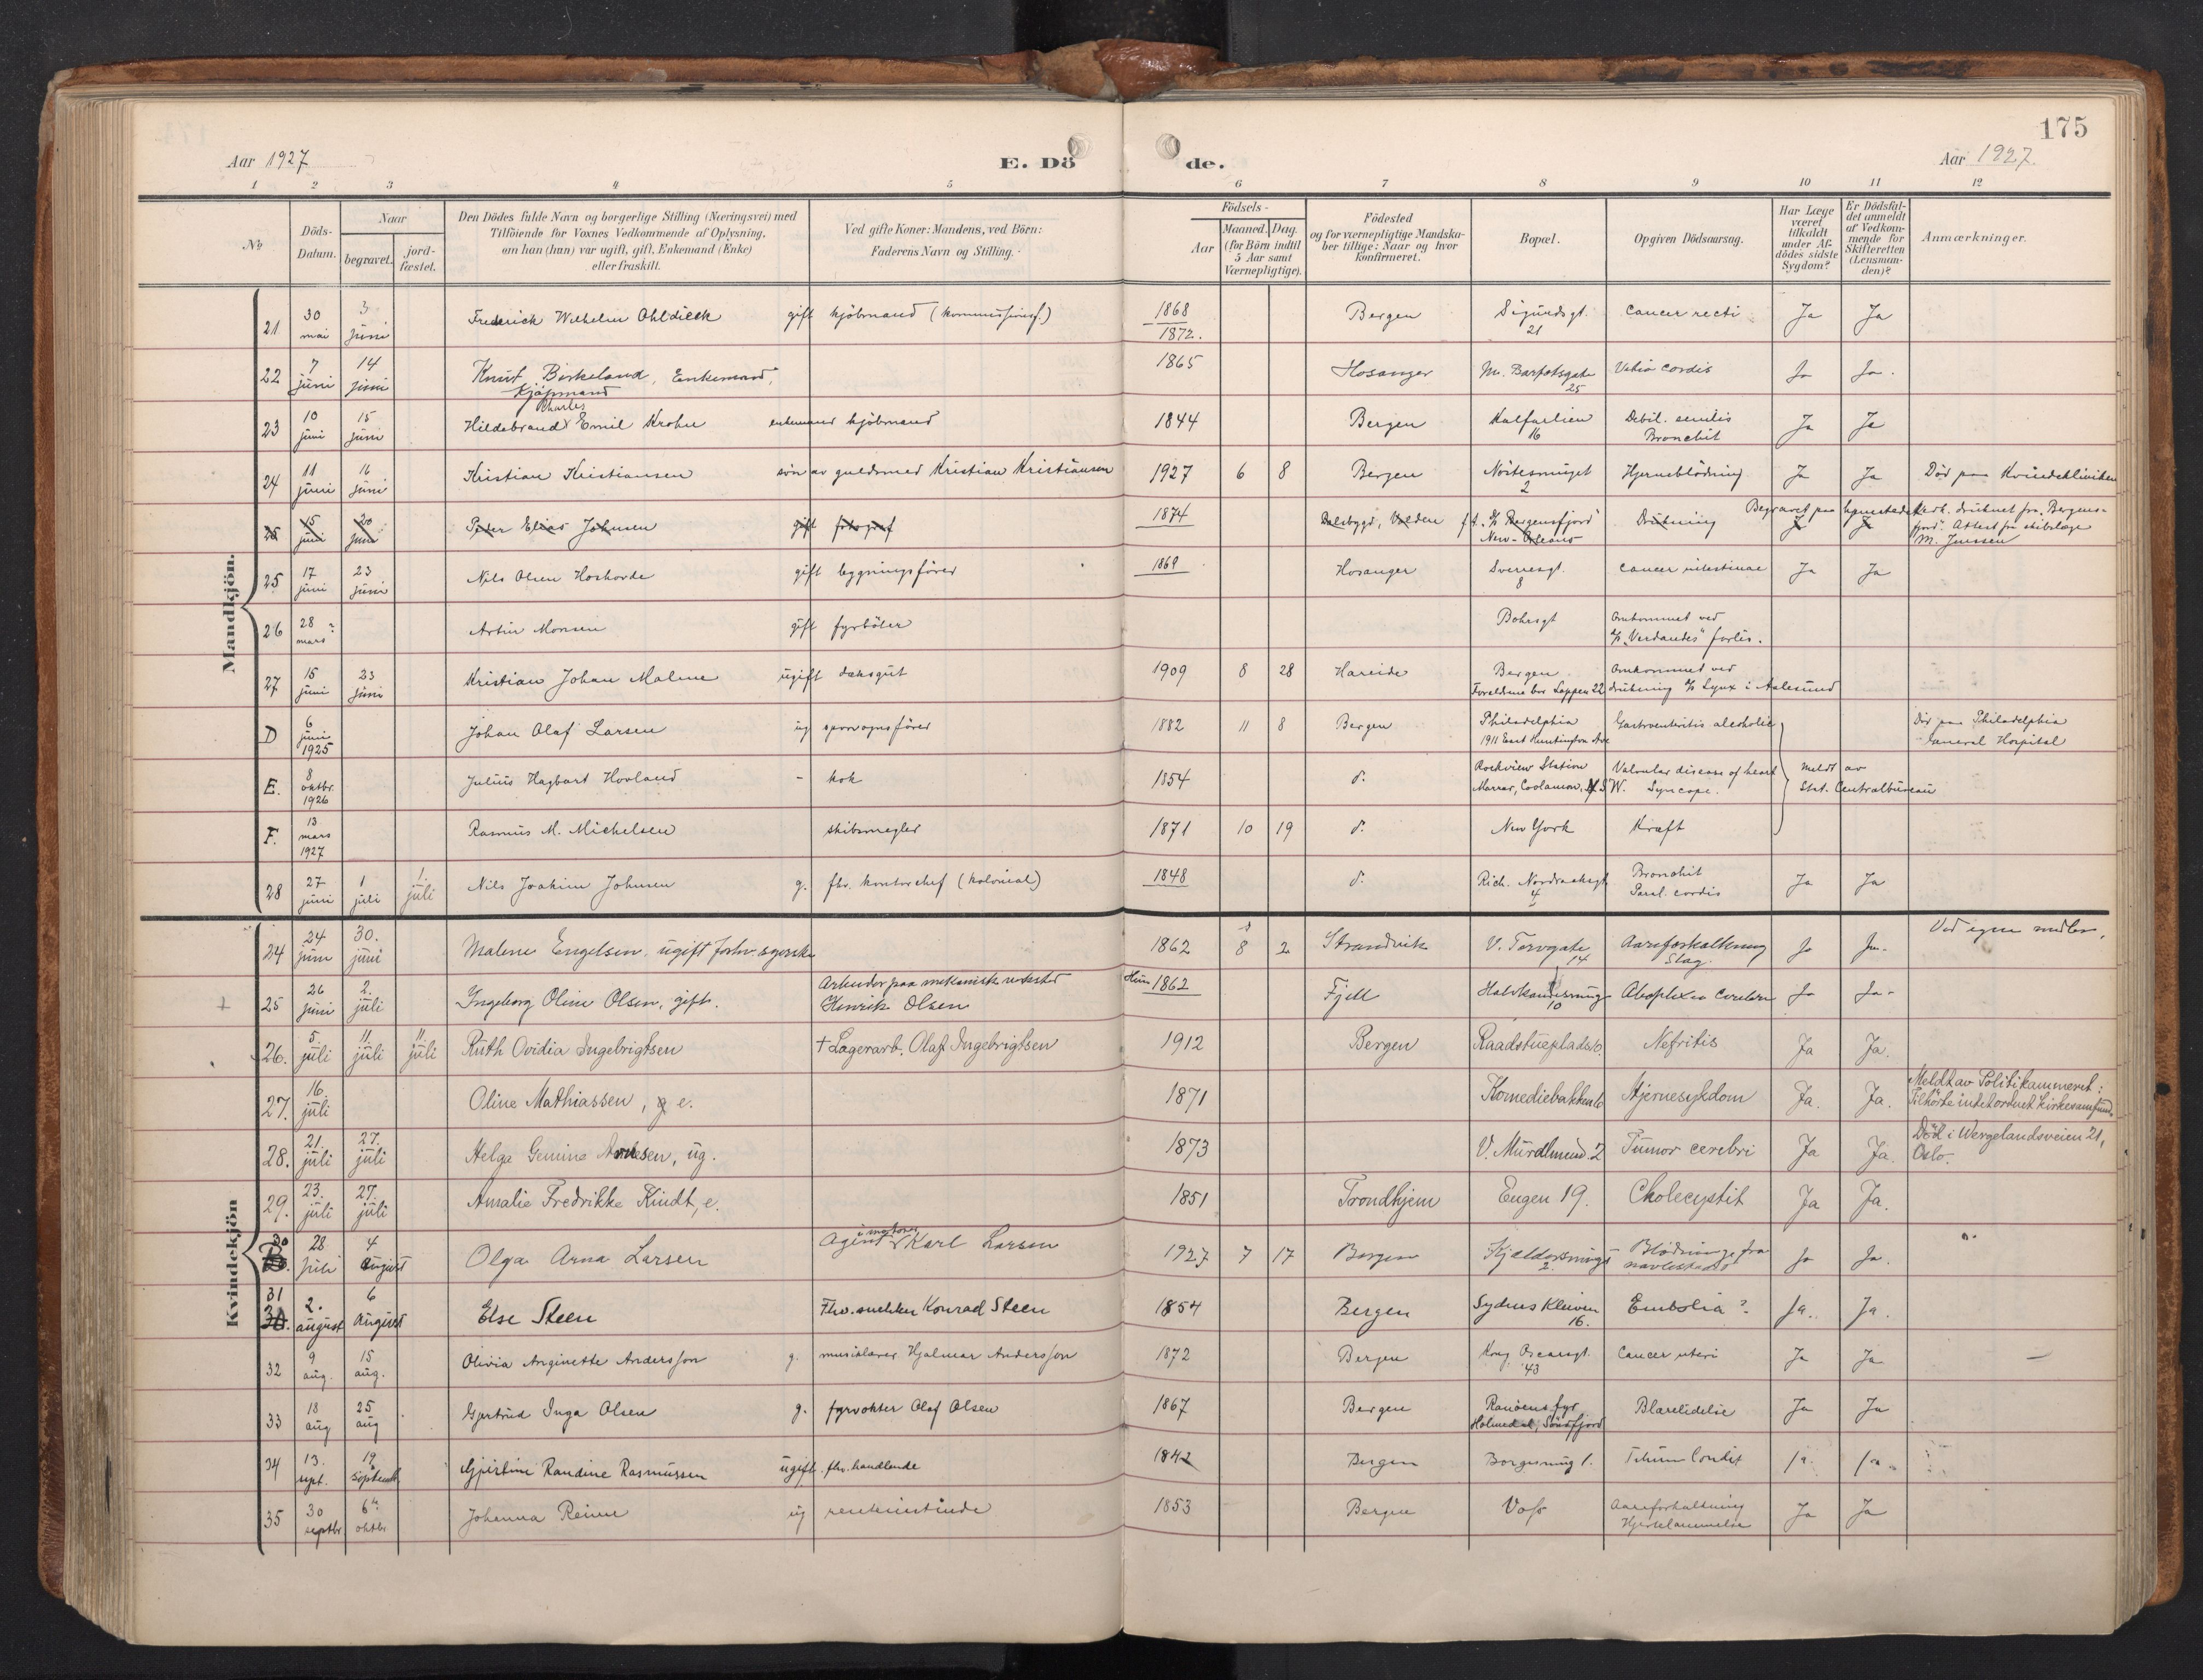 175
Aar 1927
E. Dö de.
Aar 1927.
1 2 3 4 5 6 7 8 9 10 11 12
No.
Döds-Datum.
Naar
begravet.
jord-fæstet.
Den Dödes fulde Navn og borgerlige Stilling (Næringsvei) med
Tilföiende for Voxnes Vedkommende af Oplysning,
om han (hun) var ugift, gift, Enkemand (Enke)
eller fraskilt.
Ved gifte Koner: Mandens, ved Börn:
Faderens Navn og Stilling.
Födsels-
Aar
Maaned. Dag.
(for Börn indtil
5 Aar samt
Værnepligtige).
Födested
og for værnepligtige Mandska-
ber tillige: Naar og hvor
konfirmeret.
Bopæl.
Opgiven Dödsaarsag.
Har Læge
været
tilkaldt
under Af-
dödes sidste
Sygdom?
Er Dödsfal-
det anmeldt
af Vedkom-
mende for
Skifteretten
(Lensman-
den)?
Anmærkninger.
Mandkjön.
21 30 mai 3 juni Frederick Wilhelm Ohldieck gift kjöbmand (kommissionsf.) 1868 1872. Bergen Sigurdsgt. 21 Cancer recti Ja Ja
22 7 juni 14 juni Knut Birkeland, Enkemand, Kjöpmand 1865 Hosanger M. Barfotsgate 25 Vitio cordis Ja Ja.
23 10 juni 15 juni Hildebrand Charles Emil Krohn enkemand kjöbmand 1844 Bergen Kalfarlien 16 Debil. senilis Bronchit Ja Ja
24 11 juni 16 juni Kristian Kristiansen sön av guldsmed Kristian Kristiansen 1927 6 8 Bergen Nöstesmuget 2 Hjerneblödning Ja Ja Död paa Kvindeklinikken
26 15 juni 20 juni Peter Elias Johnsen gift fotograf 1874 Dalsbygd, Volden f.t. S/S "Bergensfjord" New-Orleans Drukning Begravet paa hjemstedet Ja Ja Medd. druknet fra "Bergensfjord". Attest fra skibslæge M. Jenssen
25 17 juni 23 juni Nils Olsen Hoshovde gift bygningsförer 1869 Hosanger Sverresgt. 8 Cancer intestinae Ja Ja
26 28 mars? Artur Monsen gift fyrböter Bohrsgt Omkommet ved S/S "Verdandes" forlis.
27 15 juni 23 juni Kristian Johan Malene ugift dæksgut 1909 8 28 Hareide Bergen Foreldrene bor Lappen 22 Omkommet ved drukning S/S Lynx i Aalesund
D 6 juni 1925 Johan Olaf Larsen ug sporvognsförer 1882 11 8 Bergen Philadelphia 1911 East Huntington Ave Gastroenteritis alcoholic Död paa Philadelphia General Hospital
E. 8 oktbr. 1926 Julius Hagbart Hovland - kok 1854 d. Rockview Station Marrar, Coolamon, N.S.W. Valvular disease of heart Syncope. Meldt av Stat. Centralbureau
F. 13 mars 1927 Rasmus M. Michelsen skibsmegler 1871 10 19 d. New York Kræft
28 27 juni 1 juli 1. juli Nils Joakim Johnsen g. fhv. kontorchef (kolonial) 1848 d. Rich. Nordraaksgt 4 Bronchit Paral. cordis Ja Ja
Kvindekjön
24 24 juni 30. juni Malene Engelsen, ugift forhv. syerske 1862 8 2 Strandvik V. Torvgate 14 Aareforkalkning Slag. Ja Ja. Ved egne midler.
25 26 juni 2. juli Ingeborg Oline Olsen, gift. Arbeider paa mekanisk verksted Henrik Olsen Hun 1862 Fjell Halvkandesmug 10 Apoplexia cerebri Ja Ja.
26. 5. juli 11. juli 11. juli Ruth Ovidia Ingebrigtsen + Lagerarb. Olaf Ingebrigtsen 1912 Bergen Raadstueplads 10. Nefritis Ja Ja.
27. 16. juli Oline Mathiassen, e. 1871 Komediebakken 6 Hjernesykdom Ja. Ja. Meldt av Politikammeret: Tilhörte intet ordnet kirkesamfund.
28. 21. juli 27. juli Helga Gemine Arnesen, ug. 1873 V. Murallmend. 2 Tumor cerebri Ja Ja. Död i Wergelandsveien 21, Oslo.
29. 23. juli 27. juli Amalie Fredrikke Kindt, e. 1851 Trondhjem Engen 19. Cholecystit Ja Ja.
30 28 juli 4 august Olga Arna Larsen Agent Karl Larsen 1927 7 17 Bergen Kjeldersmug 2. Blödninge fra navlestedet Ja Ja.
31 2. august 6 august Else Steen Fhv. snekker Konrad Steen 1854 Bergen Sydnes Kleiven 16. Embolia? Ja. Ja.
32 9 aug. 15 aug. Olivia Anginette Andersson g. musiklærer Hjalmar Andersson 1872 Bergen Kong Oscarsgt. 43 Cancer uteri Ja Ja
33 18 aug 25 aug Gjertrud Inga Olsen g. fyrvokter Olaf Olsen 1867 Bergen Ranöens fyr Holmedal, Söndfjord Blærelidelse Ja Ja
34 13. sept. 19 septemb Gjertine Randine Rasmussen ugift. fhv. handlende 1842 Bergen Borgesmug 1. Ja. Ja.
35 30 septbr. 6te oktbr. Johanna Reime ug rentenistinde 1853 Bergen Voss Aareforkalkning Hjertelammelse Ja Ja